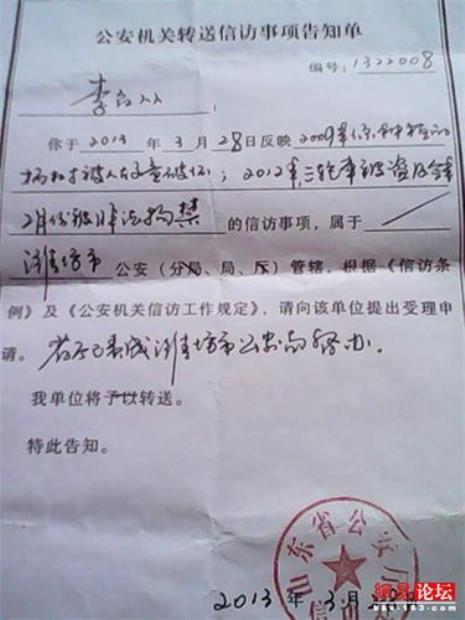 公安机关转送信访事项告知单
编号：1322008
李
你于 2013 年 3 月 28 日反映 2009年
被人 破坏；2012年，三轮车被盗及今年
2月份被非法拘禁 的信访事项，属于
潍坊市 公安（分局、局、厅）管辖，根据《信访条
例》及《公安机关信访工作规定》，请向该单位提出受理申
请。 潍坊市公安局督办。
我单位将予以转送。
特此告知。
山东省公安厅
信访
2013 年 3 月
網易 论坛